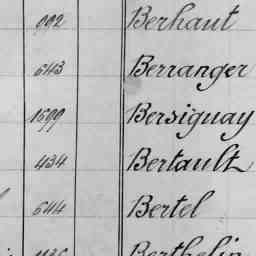 992 Berhaut
643 Berranger
1599 Bersiguay
434 Bertault
644 Bertel
Berthelin